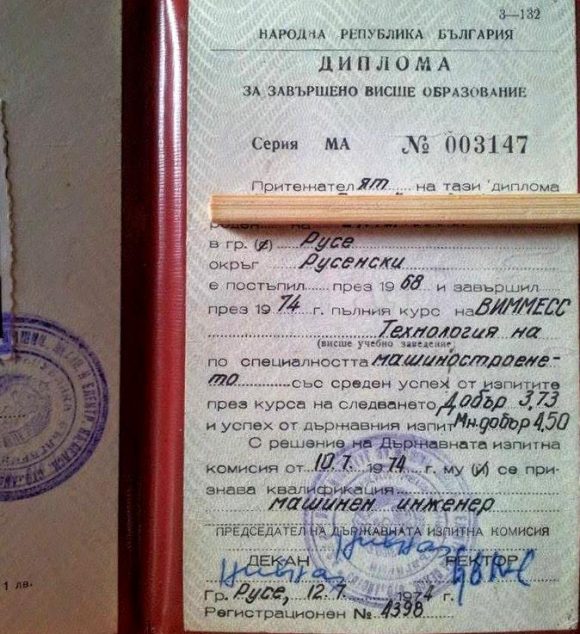 3—132
НАРОДНА РЕПУБЛИКА БЪЛГАРИЯ
ДИПЛОМА
ЗА ЗАВЪРШЕНО ВИСШЕ ОБРАЗОВАНИЕ
Серия МА № 003147
Притежателят на тази диплома
в гр. (с) Русе
окръг Русенски
е постъпил през 1968 и завършил
през 1974 г. пълния курс на ВИММЕСС
Технология на
(висше учебно заведение)
по специалността машиностроене-
то със среден успех от изпитите
през курса на следването Добър 3,73
и успех от държавния изпит Мн.добър 4,50
С решение на Държавната изпитна
комисия от 10.7. 1974 г. му (ѝ) се при-
знава квалификация
машинен инженер
ПРЕДСЕДАТЕЛ НА ДЪРЖАВНАТА ИЗПИТНА КОМИСИЯ
ДЕКАН РЕКТОР
Гр. Русе, 12.7. 1974 г.
Регистрационен № 4398
1 лв.